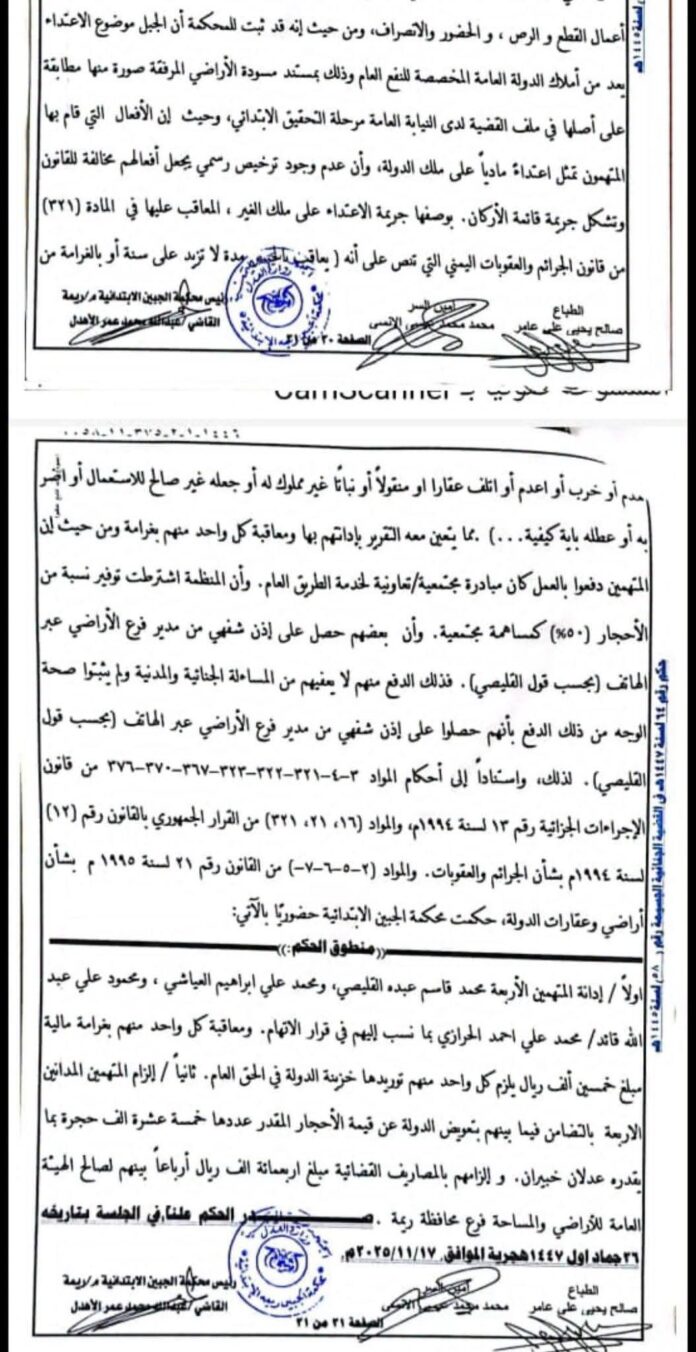 أعمال القطع و الرص ، و الحضور والانصراف، ومن حيث إنه قد ثبت للمحكمة أن الجبل موضوع الاعتداء
يعد من أملاك الدولة العامة المخصصة للنفع العام وذلك بمستند مسودة الأراضي المرفقة صورة منها مطابقة
على أصلها في ملف القضية لدى النيابة العامة مرحلة التحقيق الابتدائي، وحيث إن الأفعال التي قام بها
المتهمون تمثل اعتداءً مادياً على ملك الدولة، وأن عدم وجود ترخيص رسمي يجعل أفعالهم مخالفة للقانون
وتشكل جريمة قائمة الأركان. بوصفها جريمة الاعتداء على ملك الغير ، المعاقب عليها في المادة (٣٢١)
من قانون الجرائم والعقوبات اليمني التي تنص على أنه ( يعاقب بالحبس مدة لا تزيد على سنة أو بالغرامة من
الطباع
صالح يحيى علي عامر
أمين السر
محمد محمد يحيى الانسي
رئيس محكمة الجبين الابتدائية م/ريمة
القاضي/عبدالله محمد عمر الأهدل
الصفحة ٢٠ من ٢١
CamScanner
هدم أو خرب أو اعدم أو اتلف عقارا او منقولاً أو نباتًا غير مملوك له أو جعله غير صالح للاستعمال أو اضر
به أو عطله باية كيفية...) .مما يتعين معه التقرير بإدانتهم بها ومعاقبة كل واحد منهم بغرامة ومن حيث إن
المتهمين دفعوا بالعمل كان مبادرة مجتمعية/تعاونية لخدمة الطريق العام. وأن المنظمة اشترطت توفير نسبة من
الأحجار (٥٠%) كمساهمة مجتمعية. وأن بعضهم حصل على إذن شفهي من مدير فرع الأراضي عبر
الهاتف (بحسب قول القليصي). فذلك الدفع منهم لا يعفيهم من المساءلة الجنائية والمدنية ولم يثبتوا صحة
الوجه من ذلك الدفع بأنهم حصلوا على إذن شفهي من مدير فرع الأراضي عبر الهاتف (بحسب قول
القليصي). لذلك، واستناداً إلى أحكام المواد ٣-٤-٣٢١-٣٢٢-٣٢٣-٣٦٧-٣٧٠-٣٧٦ من قانون
الإجراءات الجزائية رقم ١٣ لسنة ١٩٩٤م، والمواد (١٦، ٢١، ٣٢١) من القرار الجمهوري بالقانون رقم (١٢)
لسنة ١٩٩٤م بشأن الجرائم والعقوبات. والمواد (٢-٥-٦-٧-) من القانون رقم ٢١ لسنة ١٩٩٥ م بشأن
أراضي وعقارات الدولة، حكمت محكمة الجبين الابتدائية حضوريًا بالآتي:
((منطوق الحكم:))
اولاً / إدانة المتهمين الأربعة محمد قاسم عبده القليصي، ومحمد علي ابراهيم العياشي ، ومحمود علي عبد
الله قائد/ محمد علي احمد الحرازي بما نسب إليهم في قرار الاتهام. ومعاقبة كل واحد منهم بغرامة مالية
مبلغ خمسين ألف ريال يلزم كل واحد منهم توريدها خزينة الدولة في الحق العام. ثانياً / إلزام المتهمين المدانين
الاربعة بالتضامن فيما بينهم بتعويض الدولة عن قيمة الأحجار المقدر عددها خمسة عشرة الف حجرة بما
يقدره عدلان خبيران. و إلزامهم بالمصاريف القضائية مبلغ اربعمائة الف ريال أرباعاً بينهم لصالح الهيئة
العامة للأراضي والمساحة فرع محافظة ريمة . صـــدر الحكم علناً في الجلسة بتاريخه
٢٦ جماد اول ١٤٤٧هجرية الموافق ٢٠٢٥/١١/١٧م.
الطباع
صالح يحيى علي عامر
أمين السر
محمد محمد يحيى الانسي
رئيس محكمة الجبين الابتدائية م/ريمة
القاضي/عبدالله محمد عمر الأهدل
الصفحة ٢١ من ٢١
حكم رقم ٦٤ لسنة ١٤٤٧هـ في القضية الجنائية الجسيمة رقم (٥٨) لسنة ١٤٤٥هـ